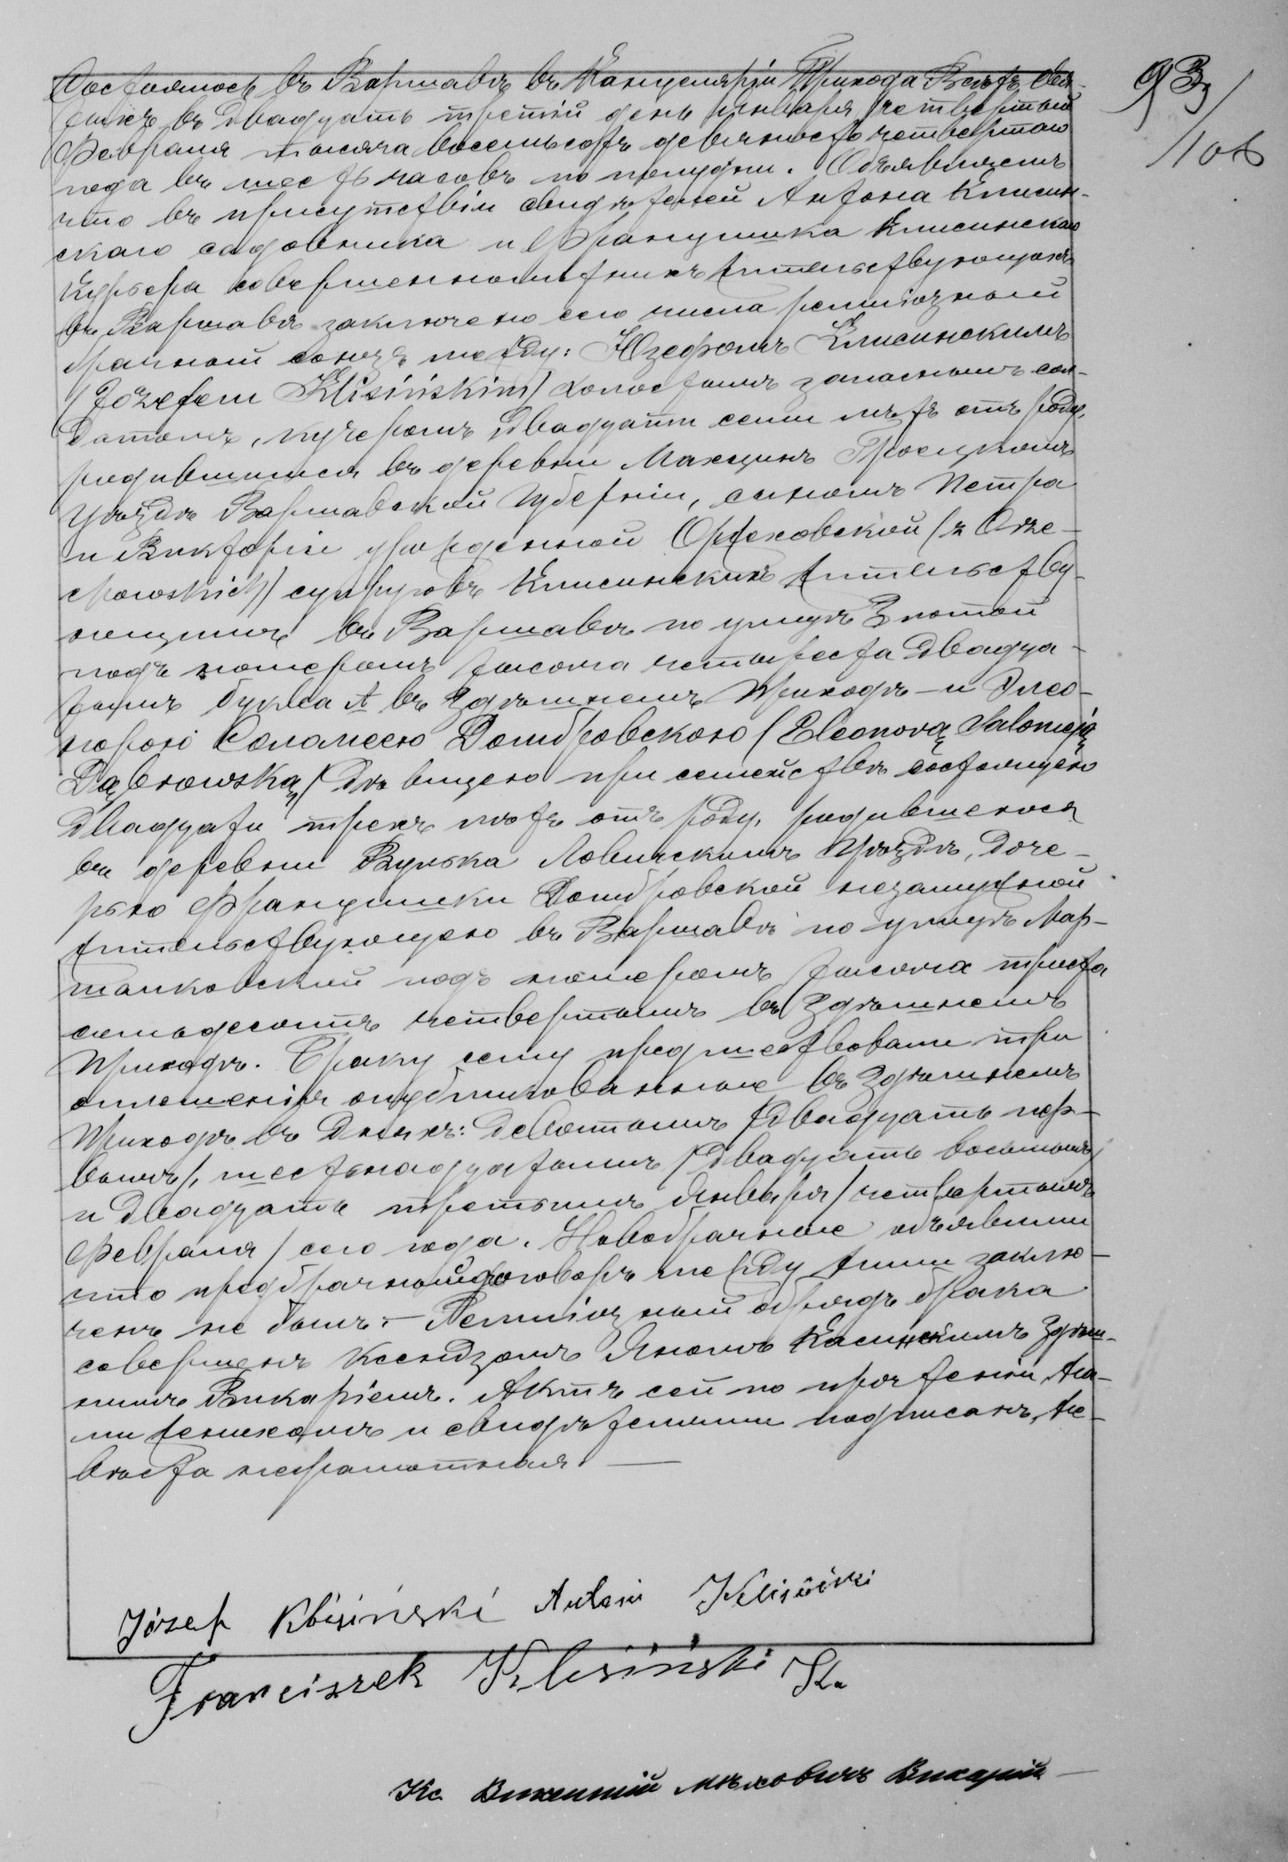 93
106
Состоялось въ Варшавѣ въ Канцеляріи Прихода Всѣхъ Свя-
тыхъ въ двадцать третій день Января /четвертый
Февраля тысяча восемьсотъ девяносто четвертаго
года въ шесть часовъ по полудни. Объявляемъ
что въ присутствіи свидѣтелей Антона Клисин-
скаго садовника и Францишка Клисинскаго
курьера совершеннолѣтнихъ жительствующихъ
въ Варшавѣ заключенъ сего числа религіозный
брачный союзъ между: Юзефомъ Клисинскимъ
/Józefem Klisińskim/ холостымъ запаснымъ сол-
датомъ, кучеромъ двадцати семи лѣтъ отъ роду,
родившимся въ деревни Махцинъ Гроецкомъ
уѣздѣ Варшавской Губерніи, сыномъ Петра
и Викторіи урожденной Оржеховской /z Orze-
chowskich/ супруговъ Клисинскихъ жительству-
ющимъ въ Варшавѣ по улицѣ Злотой
подъ номеромъ тысяча четыреста двадца-
тымъ буква А въ здѣшнемъ Приходѣ – и Элео-
норою Саломеею Домбровскою /Eleonorą Salomeją
Dąbrowską/ дѣвицею при семействѣ состоящею
двадцати трехъ лѣтъ отъ роду, родившеюся
въ деревни Вулька Ловичскимъ уѣздѣ, доче-
рью Францишки Домбровской незамужной
жительствующею въ Варшавѣ по улицѣ Мар-
шалковской подъ номеромъ тысяча триста
семьдесятъ четвертымъ въ здѣшнемъ
Приходѣ. Браку сему предшествовали три
оглашенія опубликованныя въ здѣшнемъ
Приходѣ въ дняхъ: девятомъ /двадцать пер-
вомъ/, шестьнадцатымъ /двадцать восьмомъ/
и двадцать третьимъ Января /четвертымъ
Февраля/ сего года. Новобрачные объявили
что предбрачный договоръ между ними заклю-
ченъ не былъ. – Религіозный обрядъ брака
совершенъ Ксендзомъ Яномъ Касинскимъ здѣш-
нимъ Викаріемъ. Актъ сей по прочтеніи На-
ми женихомъ и свидѣтелями подписанъ, Не-
вѣста неграмотная. —
Józef Klisiński Antoni Klisiński
Franciszek Klisiński
Кс. Викентій Викарій